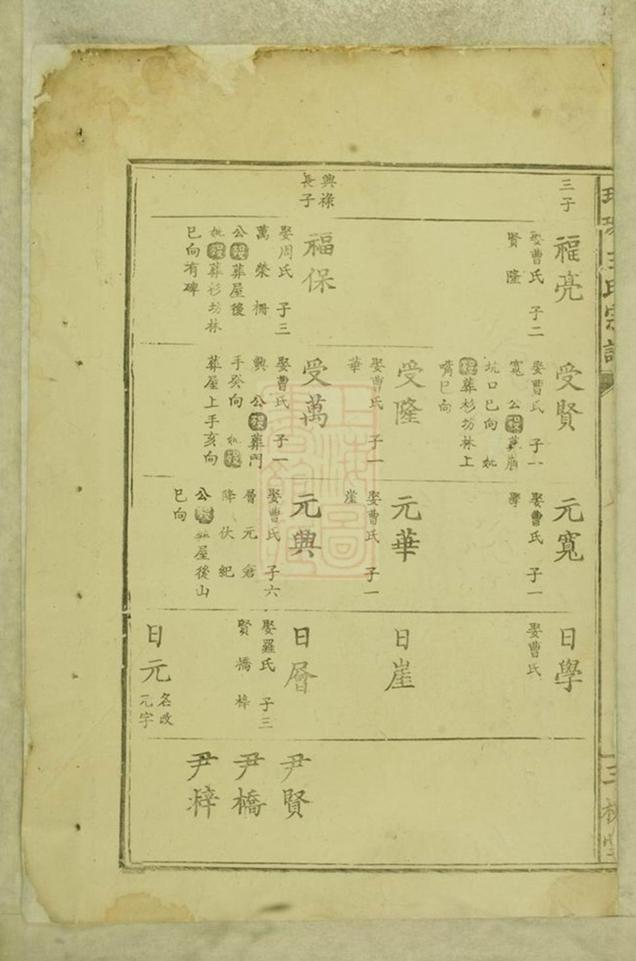 三子
福亮
娶曹氏 子二
賢 隆
興祿
長子
福保
娶周氏 子三
萬 榮 柵
公歿葬屋後
妣歿葬杉坊林
巳向有碑
受賢
娶曹氏 子一
寬 公歿葬
坑口巳向 妣
歿葬杉坊林上
巳向
受隆
娶曹氏 子一
華
受萬
娶曹氏 子一
公歿葬門
手癸向 妣歿
葬屋上手亥向
元寬
娶曹氏 子一
學
元華
娶曹氏 子一
崖
元興
娶曹氏 子六
層 元 倉
降 伏 紀
公歿葬屋後山
巳向
日學
娶曹氏
日崖
日層
娶羅氏 子三
賢 橋 梓
日元
名改
元字
尹賢
尹橋
尹梓
王氏宗譜
三槐堂